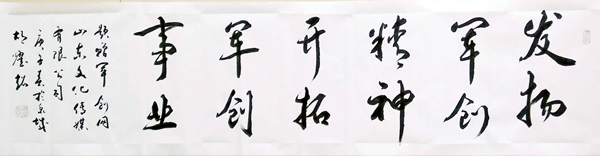 发扬
军创
精神
开拓
军创
事业
题赠军创网
山东文化传媒
有限公司
庚子春于京城